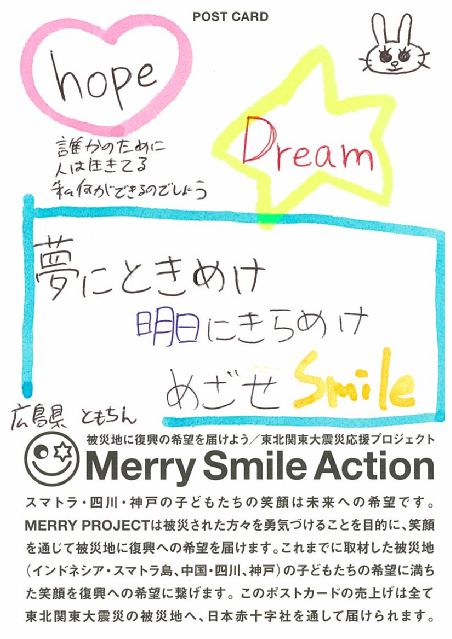 POST CARD
hope
誰かのために
人は生きてる
私何ができるのでしょう
Dream
夢にときめけ
明日にきらめけ
めざせ Smile
広島県 ともちん
被災地に復興の希望を届けよう／東北関東大震災応援プロジェクト
Merry Smile Action
スマトラ・四川・神戸の子どもたちの笑顔は未来への希望です。
MERRY PROJECTは被災された方々を勇気づけることを目的に、笑顔
を通じて被災地に復興への希望を届けます。これまでに取材した被災地
（インドネシア・スマトラ島、中国・四川、神戸）の子どもたちの希望に満ち
た笑顔を復興への希望に繋げます。このポストカードの売上げは全て
東北関東大震災の被災地へ、日本赤十字社を通して届けられます。